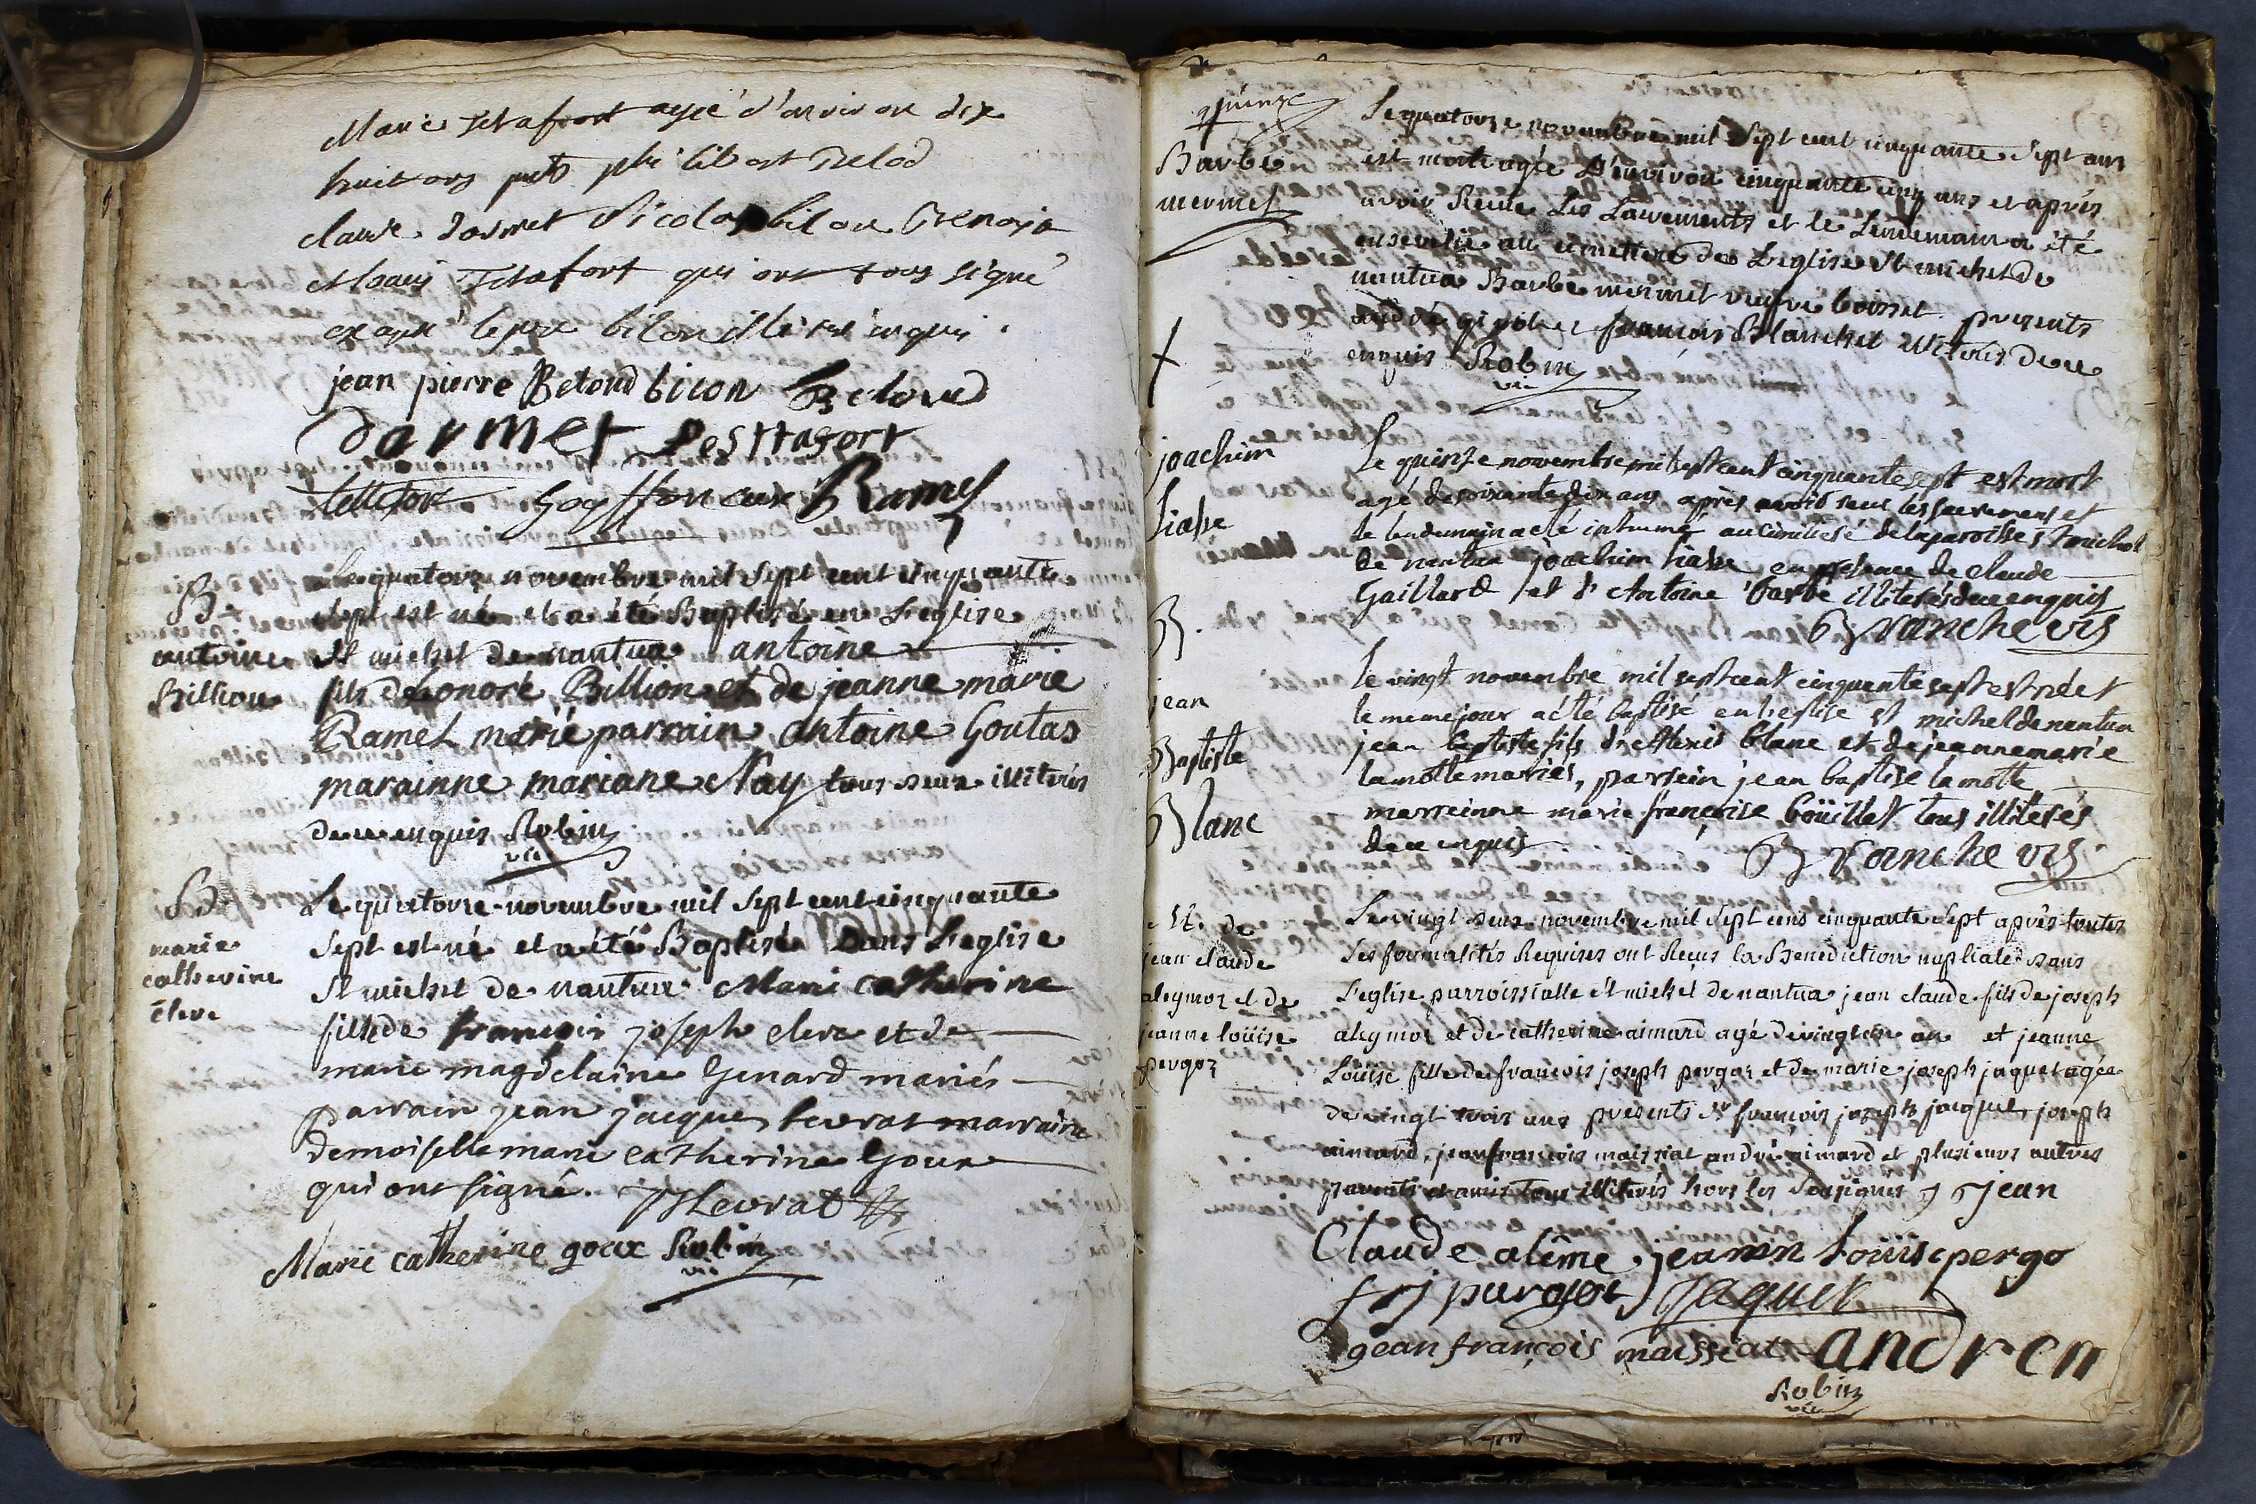 Marie
huit ans
claude darmet Nicolas bilon
et Louis qui ont tous signé
jean pierre Beloud bicon Beloud
darmet
Goyffon curé Ramel
B.
antoine
Billion
Le quatorze novembre mil sept cent cinquante
sept est né et a été Baptisé en L'eglise
St michel de nantua antoine
fils de honoré Billion et de jeanne marie
Ramel marié parrain antoine Goutas
marainne mariane Nay tous deux illiterés
de ce enquis Robin
vic
B.
marie
catherine
clerc
Le quatorze novembre mil sept cent cinquante
sept est né et a été Baptisé dans L'eglise
St michel de nantua Marie catherine
fille de françois joseph clerc et de
marie magdelaine Genard mariés
Parrain jean jacque levrat marraine
demoiselle marie catherine Goux
qui ont signé. Levrat
Marie catherine goux Robin
vic
quinze
Barbe
mermet
Le quatorze novembre mil sept cent cinquante sept ans
est morte agée D'environ cinquante cinq ans et après
avoir Recue Les Sacrements et le Lendemain a été
ensevelie au cimettiere de L'eglise St michel de
nantua Barbe mermet veufve boisset presents
françois Blanchet illiterés de ce
enquis Robin
vic
joachim
Le quinze novembre mil sept cent cinquante sept est mort
agé de soixante dix ans après avoir reçu les sacremens et
le lendemain a été inhumé au cimitiere de la paroisse St michel
de nantua joachim en presence de claude
Gaillard et d'Antoine barbe illiterés de ce enquis
Branche vic
B.
jean
Baptiste
Blanc
Le vingt novembre mil sept cent cinquante sept est né et
le meme jour a été baptisé en l'eglise St michel de nantua
jean baptiste fils d'Alexis blanc et de jeanne marie
lamotte mariés, parrein jean baptise lamotte
marreinne marie françoise boüillet tous illiterés
de ce enquis.
Branche vic
M. de
jean claude
aleymoz et de
jeanne loüise
pergoz
Le vingt deux novembre mil sept cens cinquante sept après toutes
Les formalités Requises ont Reçus la Benediction nuptiale dans
L'eglise parroissialle St michel de nantua jean claude fils de joseph
aleymoz et de catherine aimard agé de vingt an et jeanne
Loüise fille de françois joseph pergoz et de marie joseph jaquet agée
de vingt trois ans presents Sr françois joseph jacquet, joseph
aimard, jean françois maissiat andré aimard et plusieurs autres
parents et amis tous illiterés hors les Sousignés jean
Claude alême jeann Louis pergo
frj purgot Jaquet
gean françois maissiat andren
Robin
vic